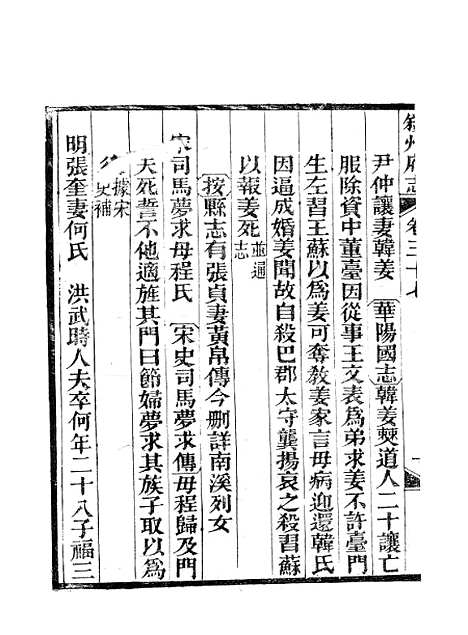 敘州府志 卷三十七 一
尹仲讓妻韓姜 華陽國志韓姜僰道人二十讓亡
服除資中董臺因從事王文表為弟求姜不許臺門
生左習王蘇以為姜可奪教姜家言毋病迎還韓氏
因逼成婚姜聞故自殺巴郡太守龔揚哀之殺習蘇
以報姜死 並通志
按縣志有張貞妻黃帛傳今刪詳南溪列女
宋司馬夢求毋程氏 宋史司馬夢求傳毋程歸及門
夫死誓不他適旌其門曰節婦夢求其族子取以為
後 據宋史補
明張奎妻何氏 洪武時人夫卒何年二十八子福三